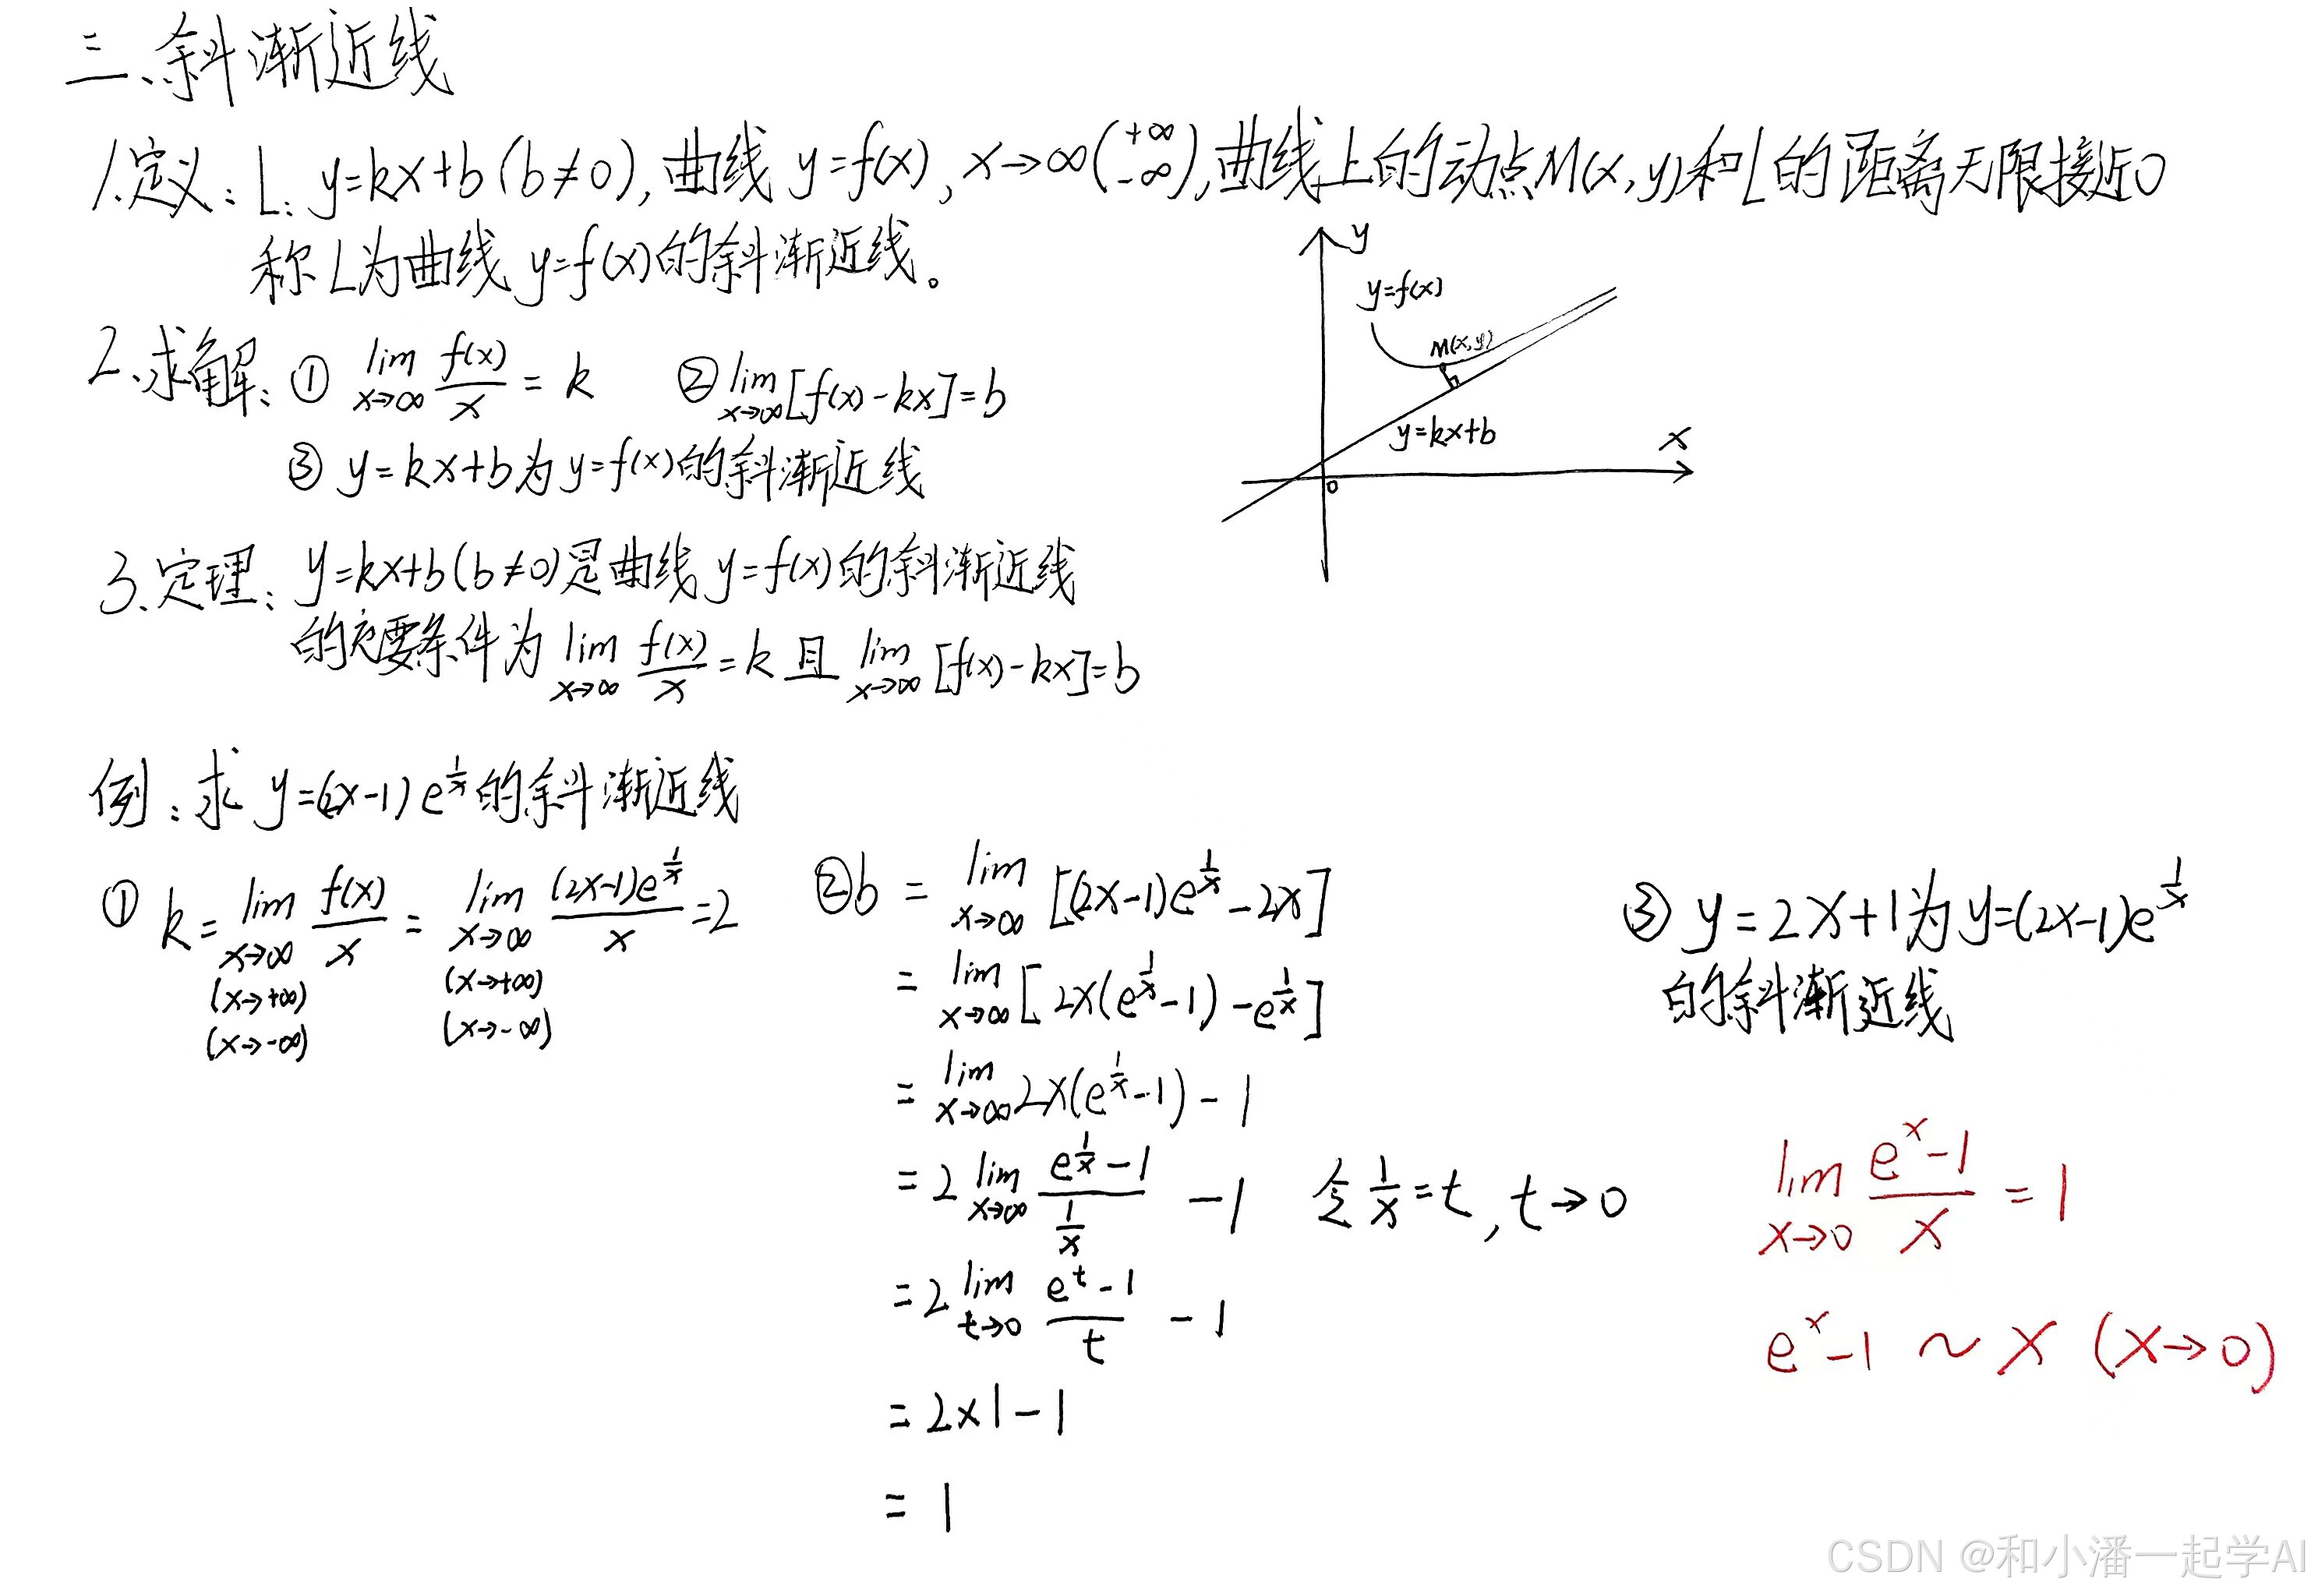 三、斜渐近线
1.定义：L: y=kx+b (b≠0), 曲线 y=f(x), x→∞(+∞ -∞), 曲线上的动点M(x,y)和L的距离无限接近0
称L为曲线 y=f(x)的斜渐近线。
y
y=f(x)
M(x,y)
y=kx+b
x
0
2.求解：① lim x→∞ f(x)/x = k ② lim x→∞ [f(x)-kx]=b
③ y=kx+b为y=f(x)的斜渐近线
3.定理：y=kx+b(b≠0)是曲线 y=f(x)的斜渐近线
的充要条件为 lim x→∞ f(x)/x = k 且 lim x→∞ [f(x)-kx]=b
例：求 y=(2x-1)e^(1/x)的斜渐近线
① k = lim x→∞ (x→+∞) (x→-∞) f(x)/x = lim x→∞ (x→+∞) (x→-∞) (2x-1)e^(1/x)/x = 2
② b = lim x→∞ [(2x-1)e^(1/x)-2x]
= lim x→∞ [2x(e^(1/x)-1)-e^(1/x)]
= lim x→∞ 2x(e^(1/x)-1)-1
= 2 lim x→∞ (e^(1/x)-1)/(1/x) -1 令 1/x=t, t→0
= 2 lim t→0 (e^t-1)/t -1
= 2×1-1
= 1
③ y=2x+1为y=(2x-1)e^(1/x)
的斜渐近线
lim x→0 (e^x-1)/x = 1
e^x-1 ~ x (x→0)
CSDN @和小潘一起学AI